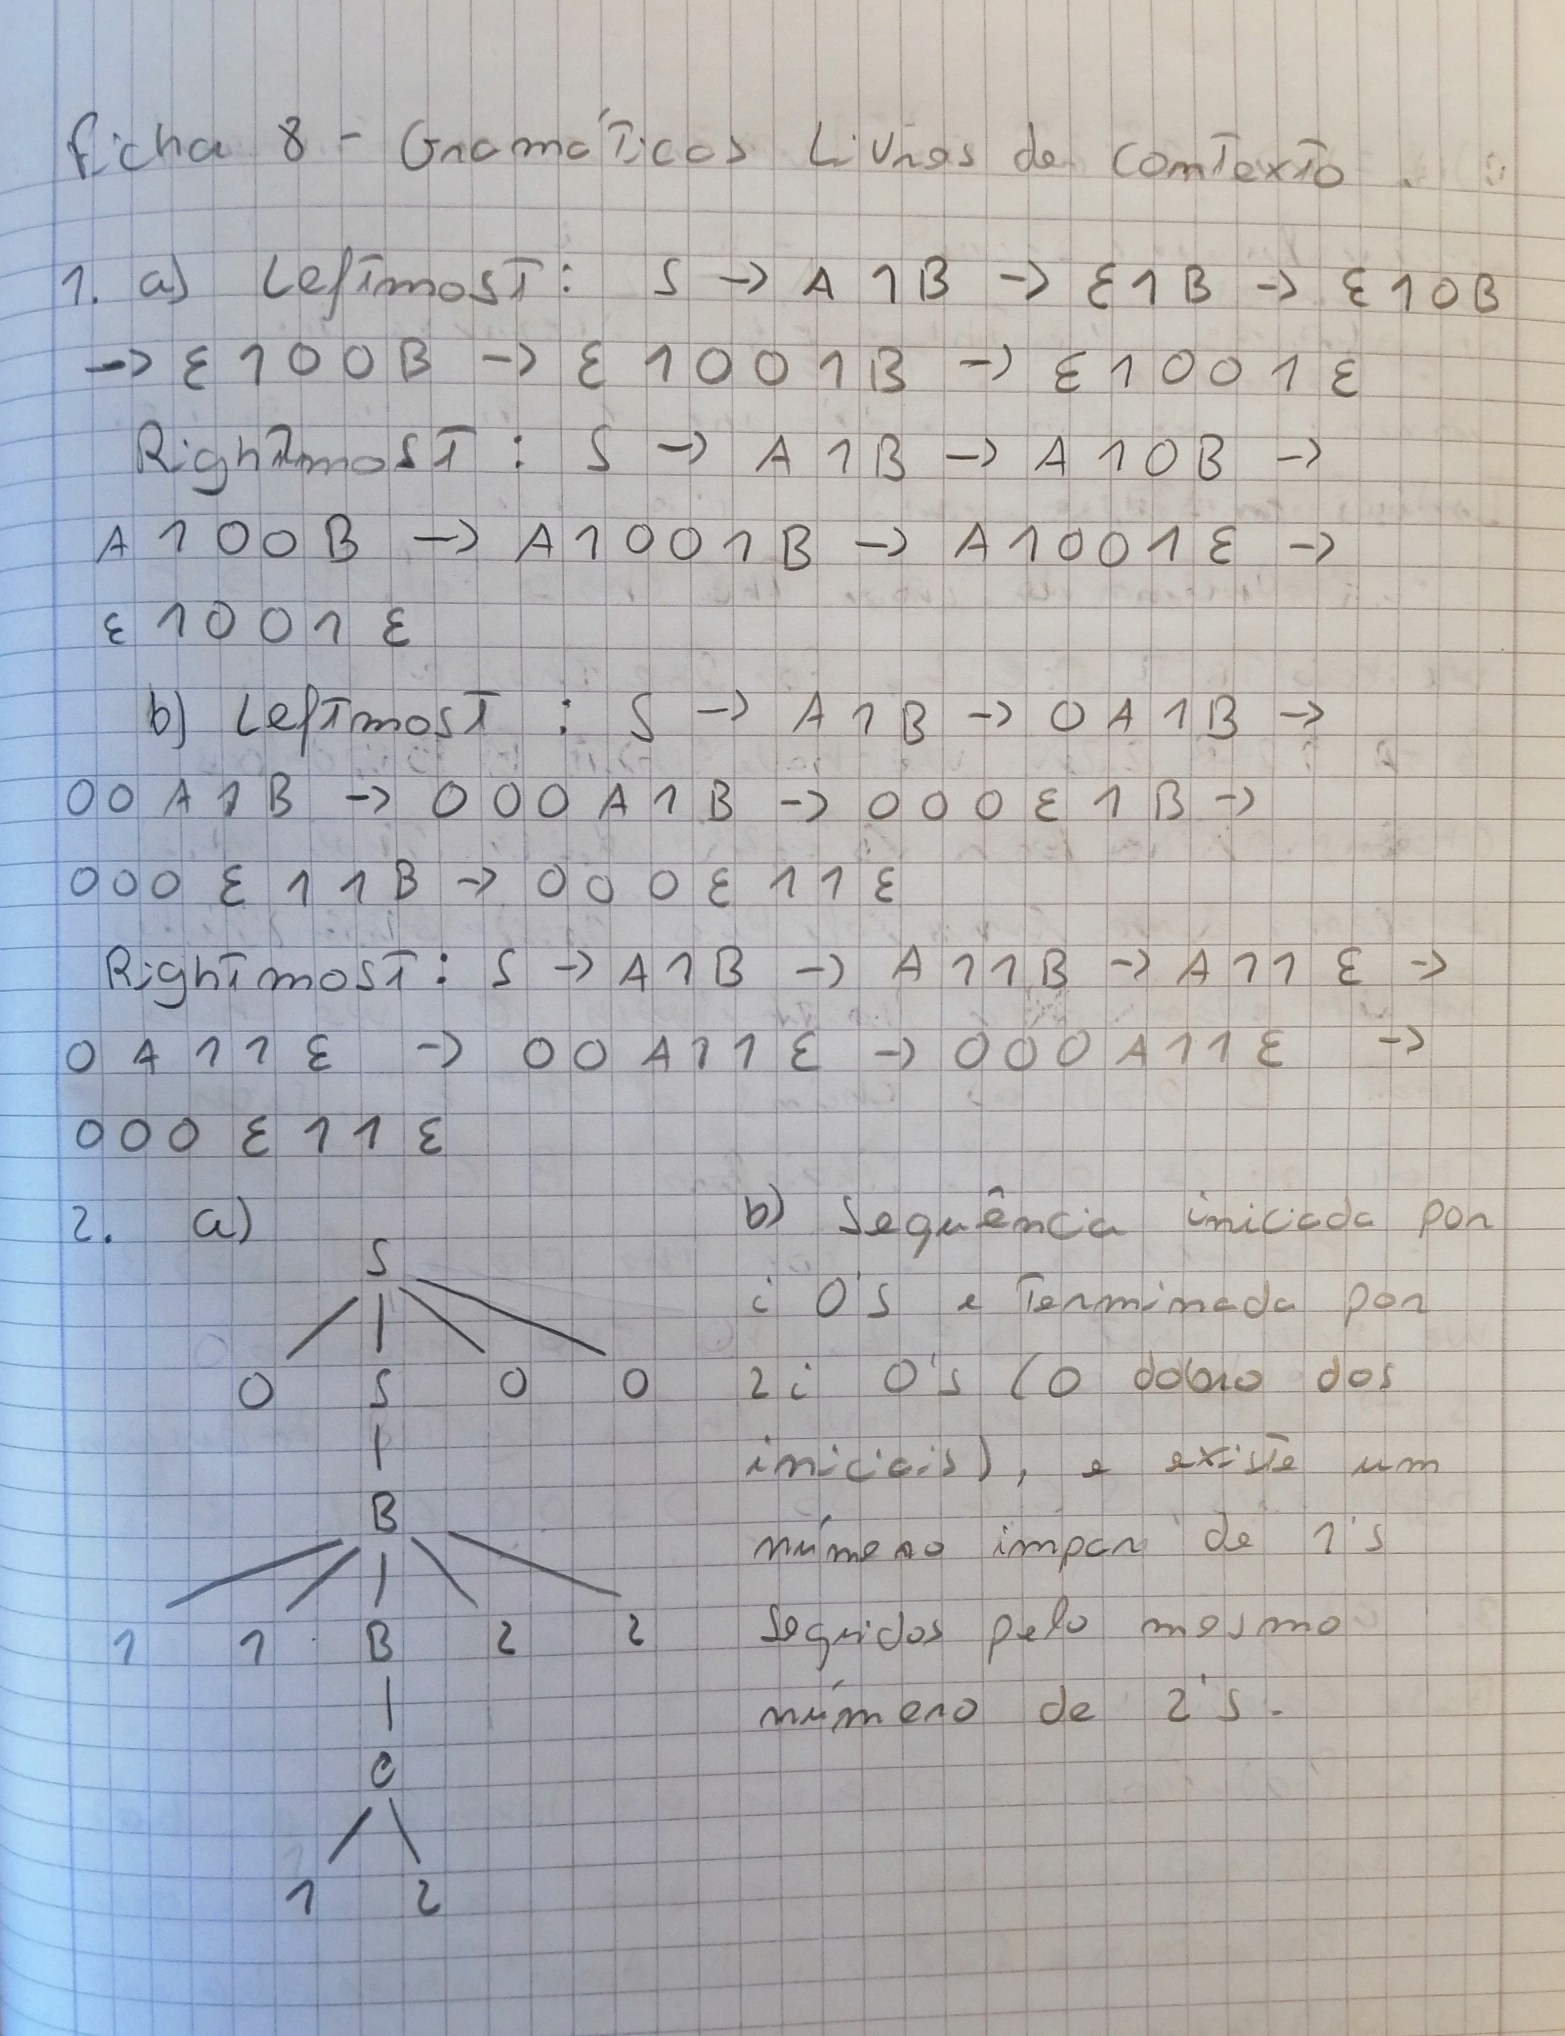 Ficha 8 - Gramáticas Livres de Contexto.
1. a) Leftmost: S → A1B → ε1B → ε10B
→ ε100B → ε1001B → ε1001ε
Rightmost: S → A1B → A10B →
A100B → A1001B → A1001ε →
ε1001ε
b) Leftmost: S → A1B → 0A1B →
00A1B → 000A1B → 000ε1B →
000ε11B → 000ε11ε
Rightmost: S → A1B → A11B → A11ε →
0A11ε → 00A11ε → 000A11ε →
000ε11ε
2. a)
S
0 S 0 0
B
1 1 B 2 2
C
1 2
b) Sequência iniciada por
i 0's e terminada por
2i 0's (o dobro dos
iniciais), e existe um
número impar de 1's
seguidos pelo mesmo
número de 2's.